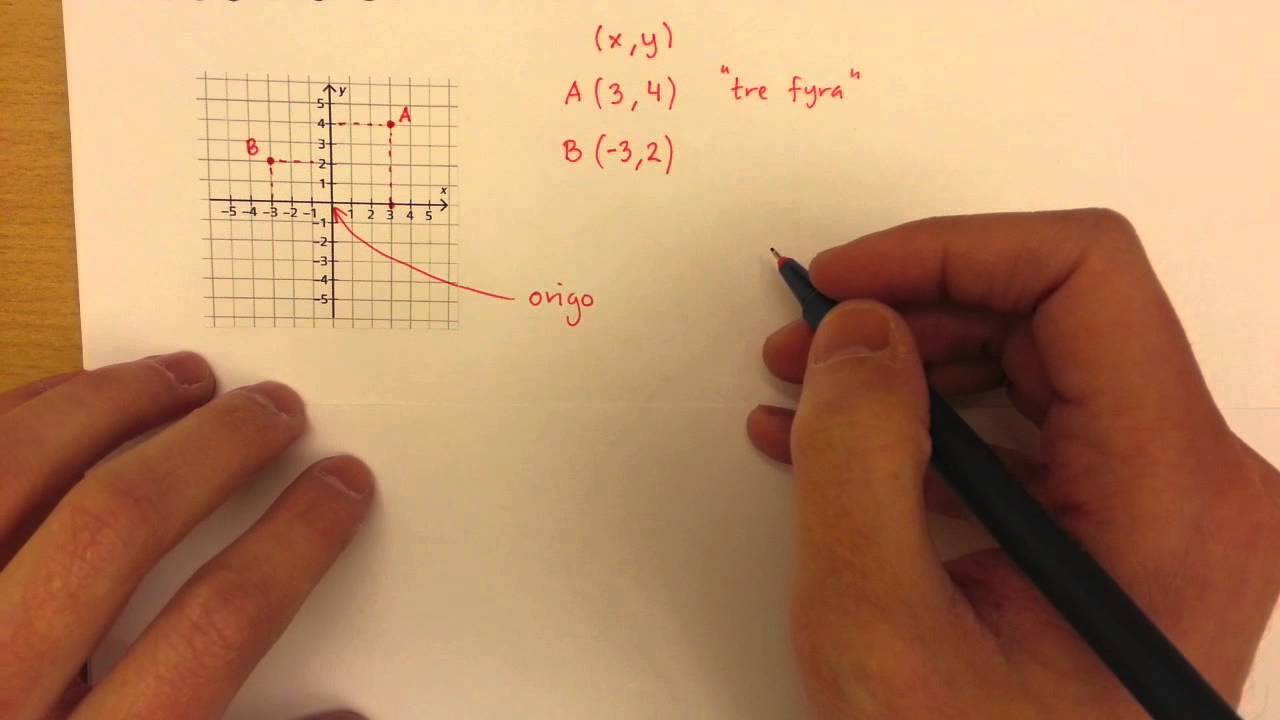 (x,y)
A (3,4) "tre fyra"
B (-3,2)
y
5
4
A
3
B
2
1
x
-5 -4 -3 -2 -1 1 2 3 4 5
-1
-2
-3
-4
-5
origo